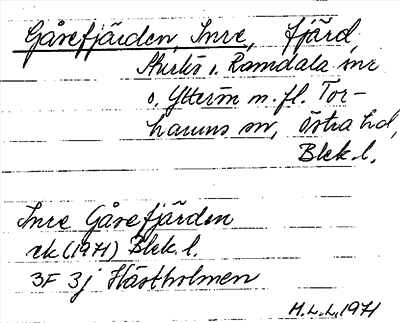 Gåsefjärden, Inre, fjärd,
Sturkö i Ramdala snr
o. Ytterön m. fl. Tor-
hamns sn, östra hd,
Blek. l.
Inre Gåsefjärden
ek (1971) Blek. l.
3F 3j Hästholmen
M.L.L. 1971